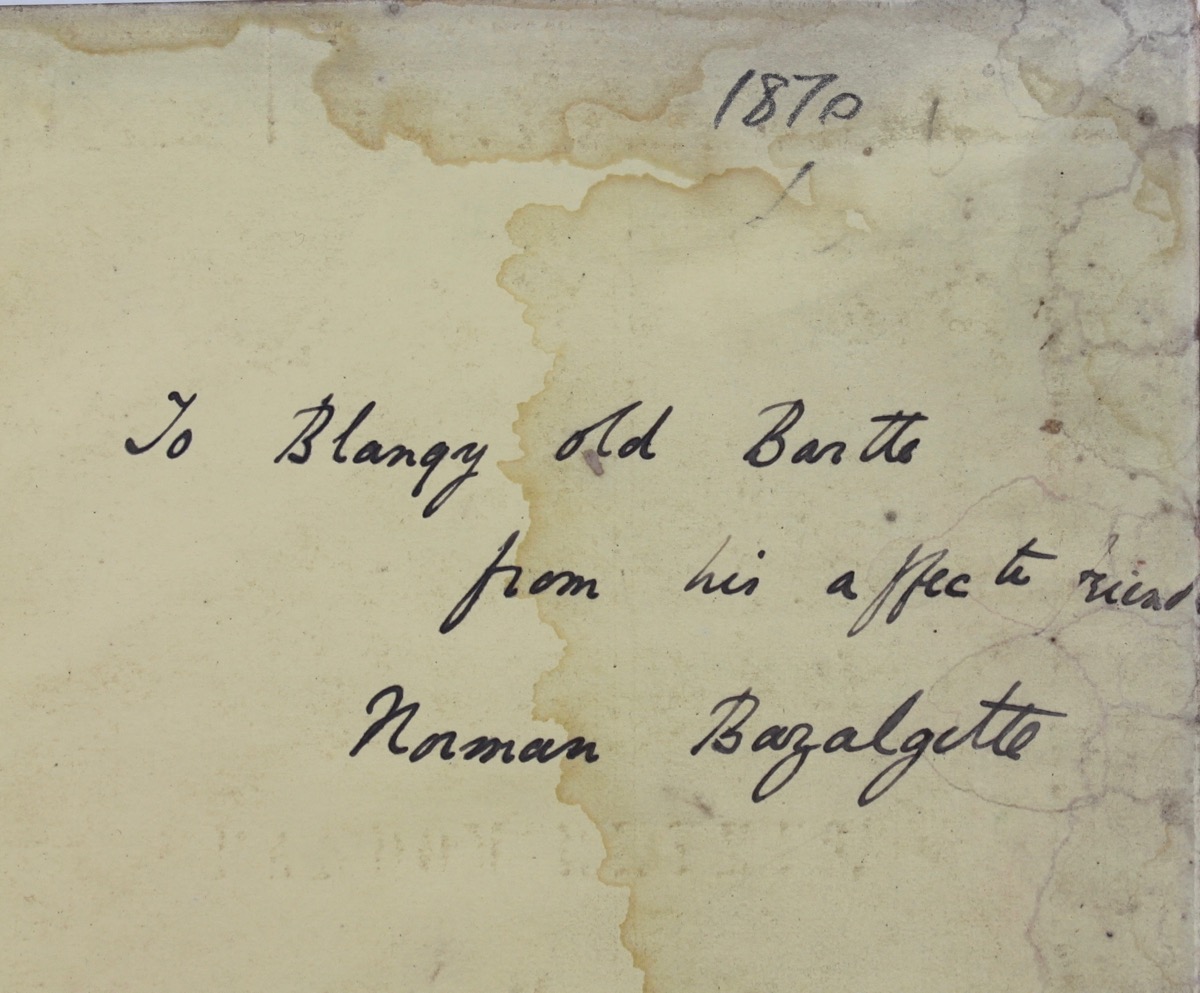 1870
To Blangy old Bartte
from his affecte friend
Norman Bazalgette